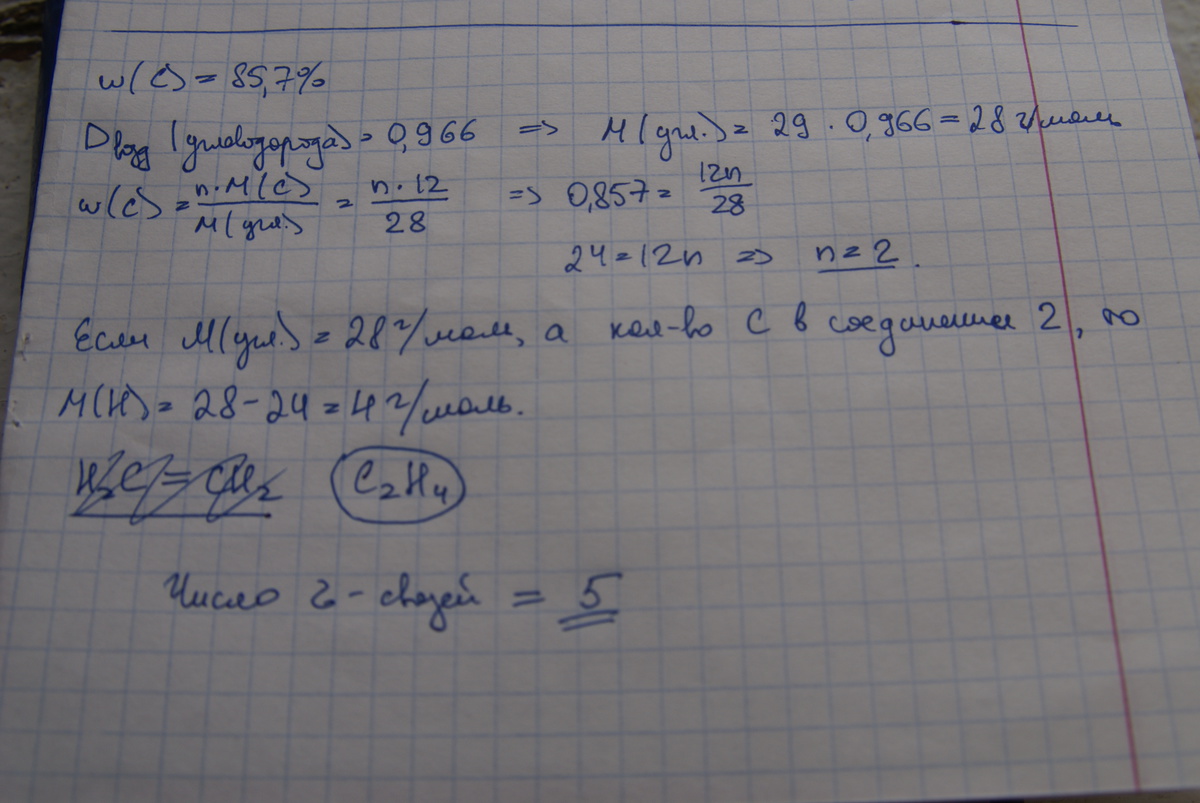 w(C) = 85,7%
Dвозд (углеводорода) = 0,966 => M(угл.) = 29 · 0,966 = 28 г/моль
w(C) = n·M(C)/M(угл.) = n·12/28 => 0,857 = 12n/28
24 = 12n => n = 2.
Если M(угл.) = 28 г/мол, а кол-во C в соединении 2, то
M(H) = 28 - 24 = 4 г/моль.
H₂C = CH₂ C₂H₄
Число σ - связей = 5